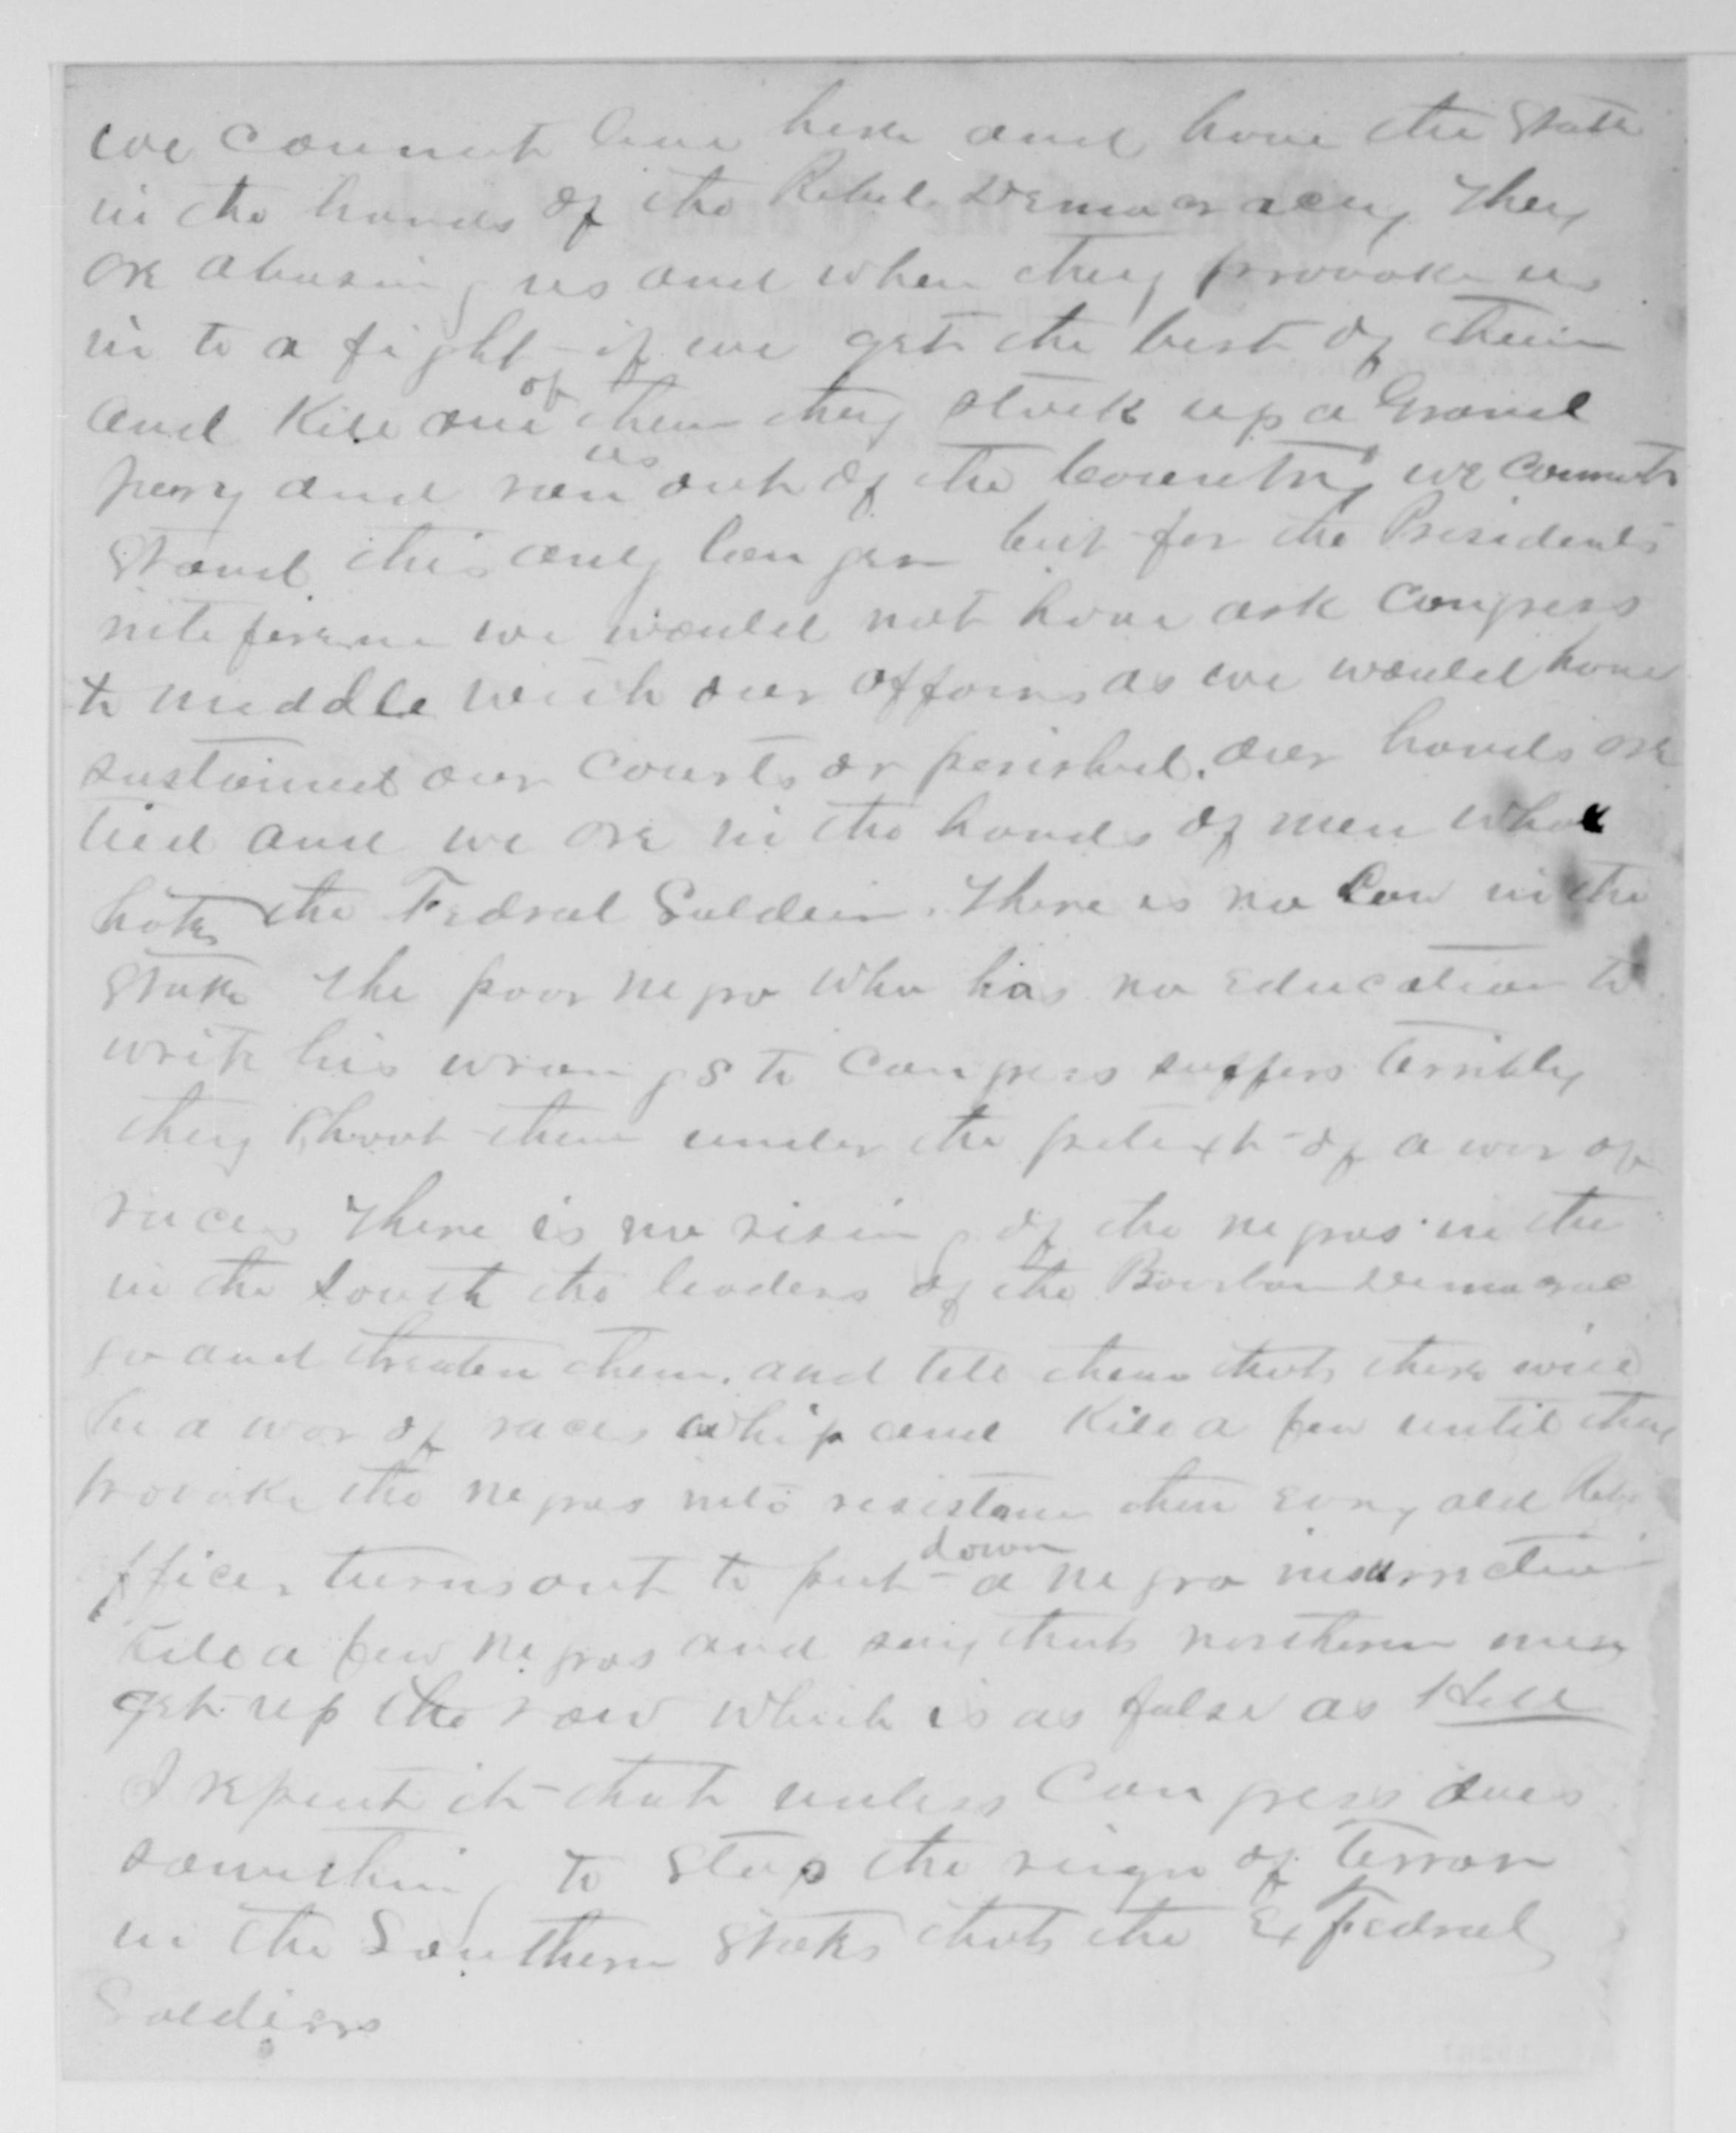 we cannot live here and have the State
in the hands of the Rebel Democracy They
are abusing us and when they provoke us
in to a fight if we get the best of them
and Kill one of them they stock up a Grand
jury and run us out of the Country we cannot
stand this any longer but for the Presidents
inteference we would not have ask Congress
to meddle with our affairs as we would have
sustained our Courts or perished. our hands are
tied and we are in the hands of men who
hates the Fedral Soldier. There is no Law in the
State The poor negro who has no education to
write his wrongs to Congress suffers terribly
they Shoot them under the pretext of a war of
races There is no rising of the negros in the
in the South the leaders of the Bourbon Democrac
go and threaten them. and tell them that there will
be a war of races whip and Kill a few until they
provoke the negros into resistance then evry old Reb
officer turns out to put down a negro insurrection
Kill a few negros and say that northern men
get up the row which is as false as Hell
I repeat it that unless Congress does
something to stop the reign of Terror
in the Southern States that the Ex Fedral
Soldiers